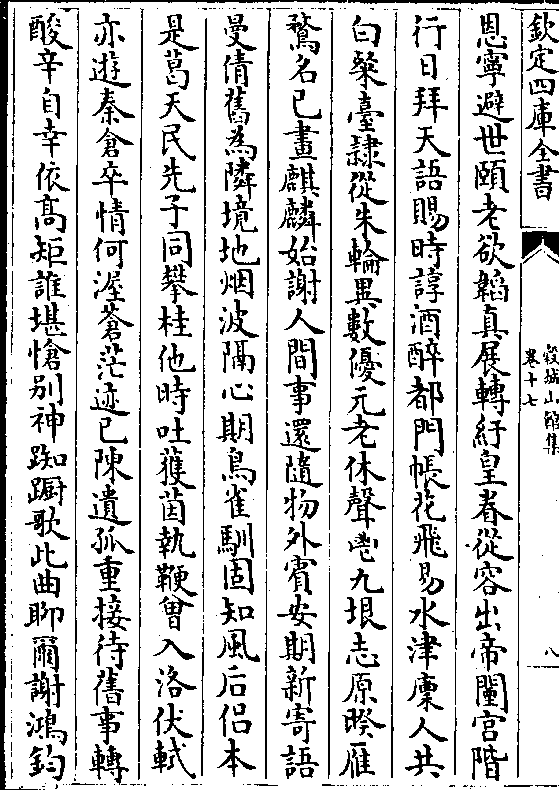 欽定四庫全書
穀城山館集
卷十七
八
恩寧避世頤老欲韜真展轉紆皇眷從容出帝闉宫階
行日拜天語賜時諄酒醉都門帳花飛易水津廩人共
白粲臺隷從朱輪異數優元老休聲鬯九垠志原暌雁
鶩名已畫麒麟始謝人間事還隨物外賓安期新寄語
曼倩舊為隣境地烟波隔心期鳥雀馴固知風后侣本
是葛天民先子同攀桂他時吐䕶茵執鞭曽入洛伏軾
亦遊秦倉卒情何渥蒼茫迹已陳遺孤重接待舊事轉
酸辛自幸依髙矩誰堪愴别神踟蹰歌此曲聊爾謝鴻鈞